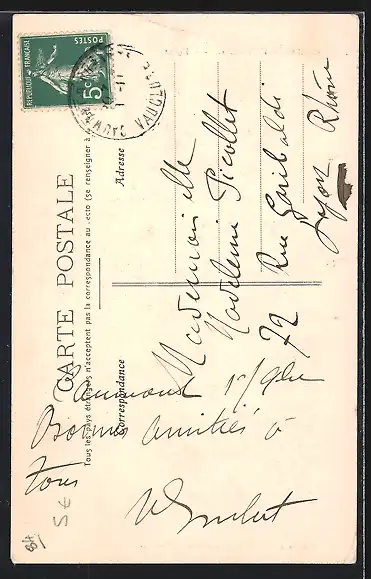 REPUBLIQUE FRANÇAISE
POSTES
5c
VAUCLUSE
CARTE POSTALE
Tous les pays étrangers n'acceptent pas la correspondance au recto (se renseigner à
Correspondance
Adresse
Mademoiselle
Madeleine Picollet
72 Rue Garibaldi
Lyon Rhône
1er/
Bonnes Amitiés à
tous
5 €